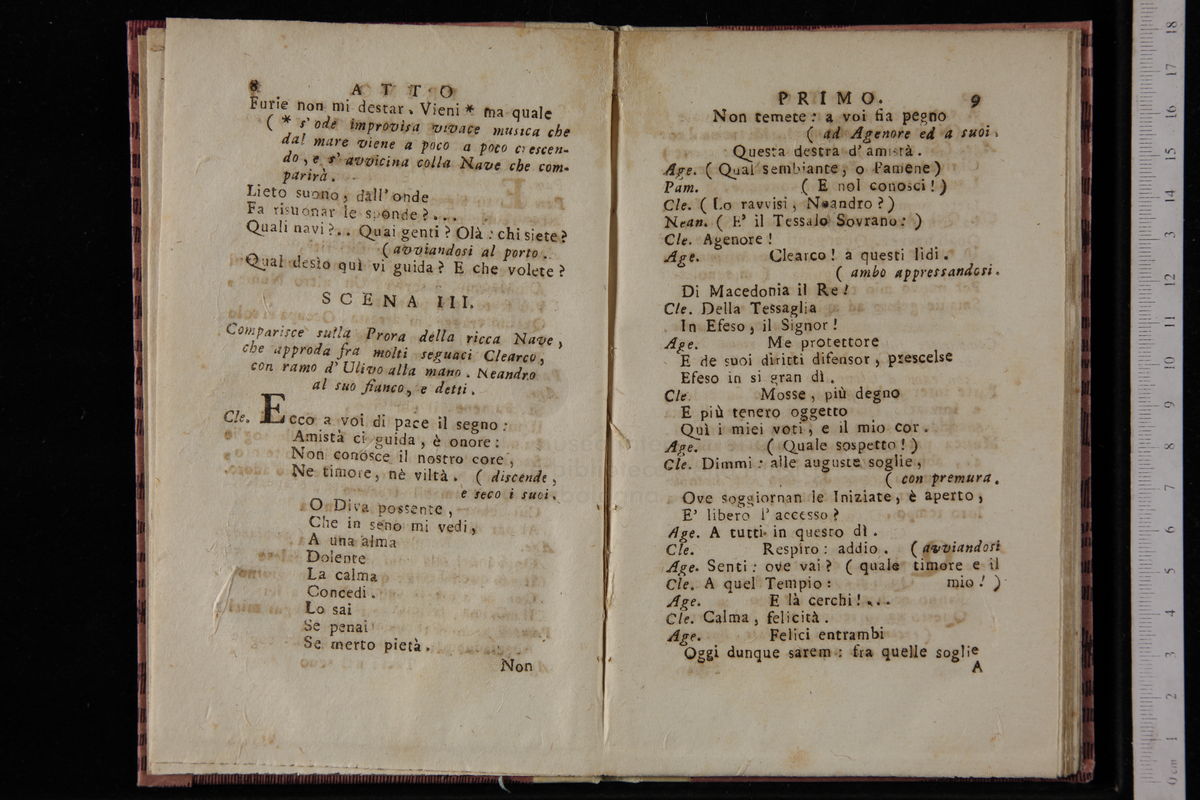 8 ATTO
Furie non mi destar. Vieni * ma quale
( * s' ode improvisa vivace musica che
dal mare viene a poco a poco crescen-
do, e s' avvicina colla Nave che com-
parirà.
Lieto suono, dall' onde
Fa risuonar le sponde?...
Quali navi?.. Quai genti? Olà: chi siete?
(avviandosi al porto.
Qual desìo quì vi guida? E che volete?
SCENA III.
Comparisce sulla Prora della ricca Nave,
che approda fra molti seguaci Clearco,
con ramo d' Ulivo alla mano. Neandro
al suo fianco, e detti.
Cle. Ecco a voi di pace il segno:
Amistà ci guida, è onore:
Non conosce il nostro core,
Ne timore, nè viltà. ( discende,
e seco i suoi.
O Diva possente,
Che in seno mi vedi,
A una alma
Dolente
La calma
Concedi.
Lo sai
Se penai
Se merto pietà.
Non
PRIMO. 9
Non temete: a voi fia pegno
( ad Agenore ed a suoi.
Questa destra d' amistà.
Age. ( Qual sembiante, o Pamene)
Pam. ( E nol conosci!)
Cle. ( Lo ravvisi, Neandro?)
Nean. ( E' il Tessalo Sovrano: )
Cle. Agenore!
Age. Clearco! a questi lidi.
( ambo appressandosi.
Di Macedonia il Re!
Cle. Della Tessaglia
In Efeso, il Signor!
Age. Me protettore
E de suoi diritti difensor, prescelse
Efeso in si gran dì.
Cle. Mosse, più degno
E più tenero oggetto
Quì i miei voti, e il mio cor.
Age. ( Quale sospetto!)
Cle. Dimmi: alle auguste soglie,
( con premura.
Ove soggiornan le Iniziate, è aperto,
E' libero l' accesso?
Age. A tutti in questo dì.
Cle. Respiro: addio. (avviandosi
Age. Senti: ove vai? ( quale timore e il
Cle. A quel Tempio: mio! )
Age. E là cerchi!...
Cle. Calma, felicità.
Age. Felici entrambi
Oggi dunque sarem: fra quelle soglie
A